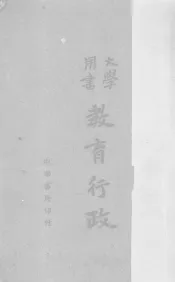 大學用書
教育行政